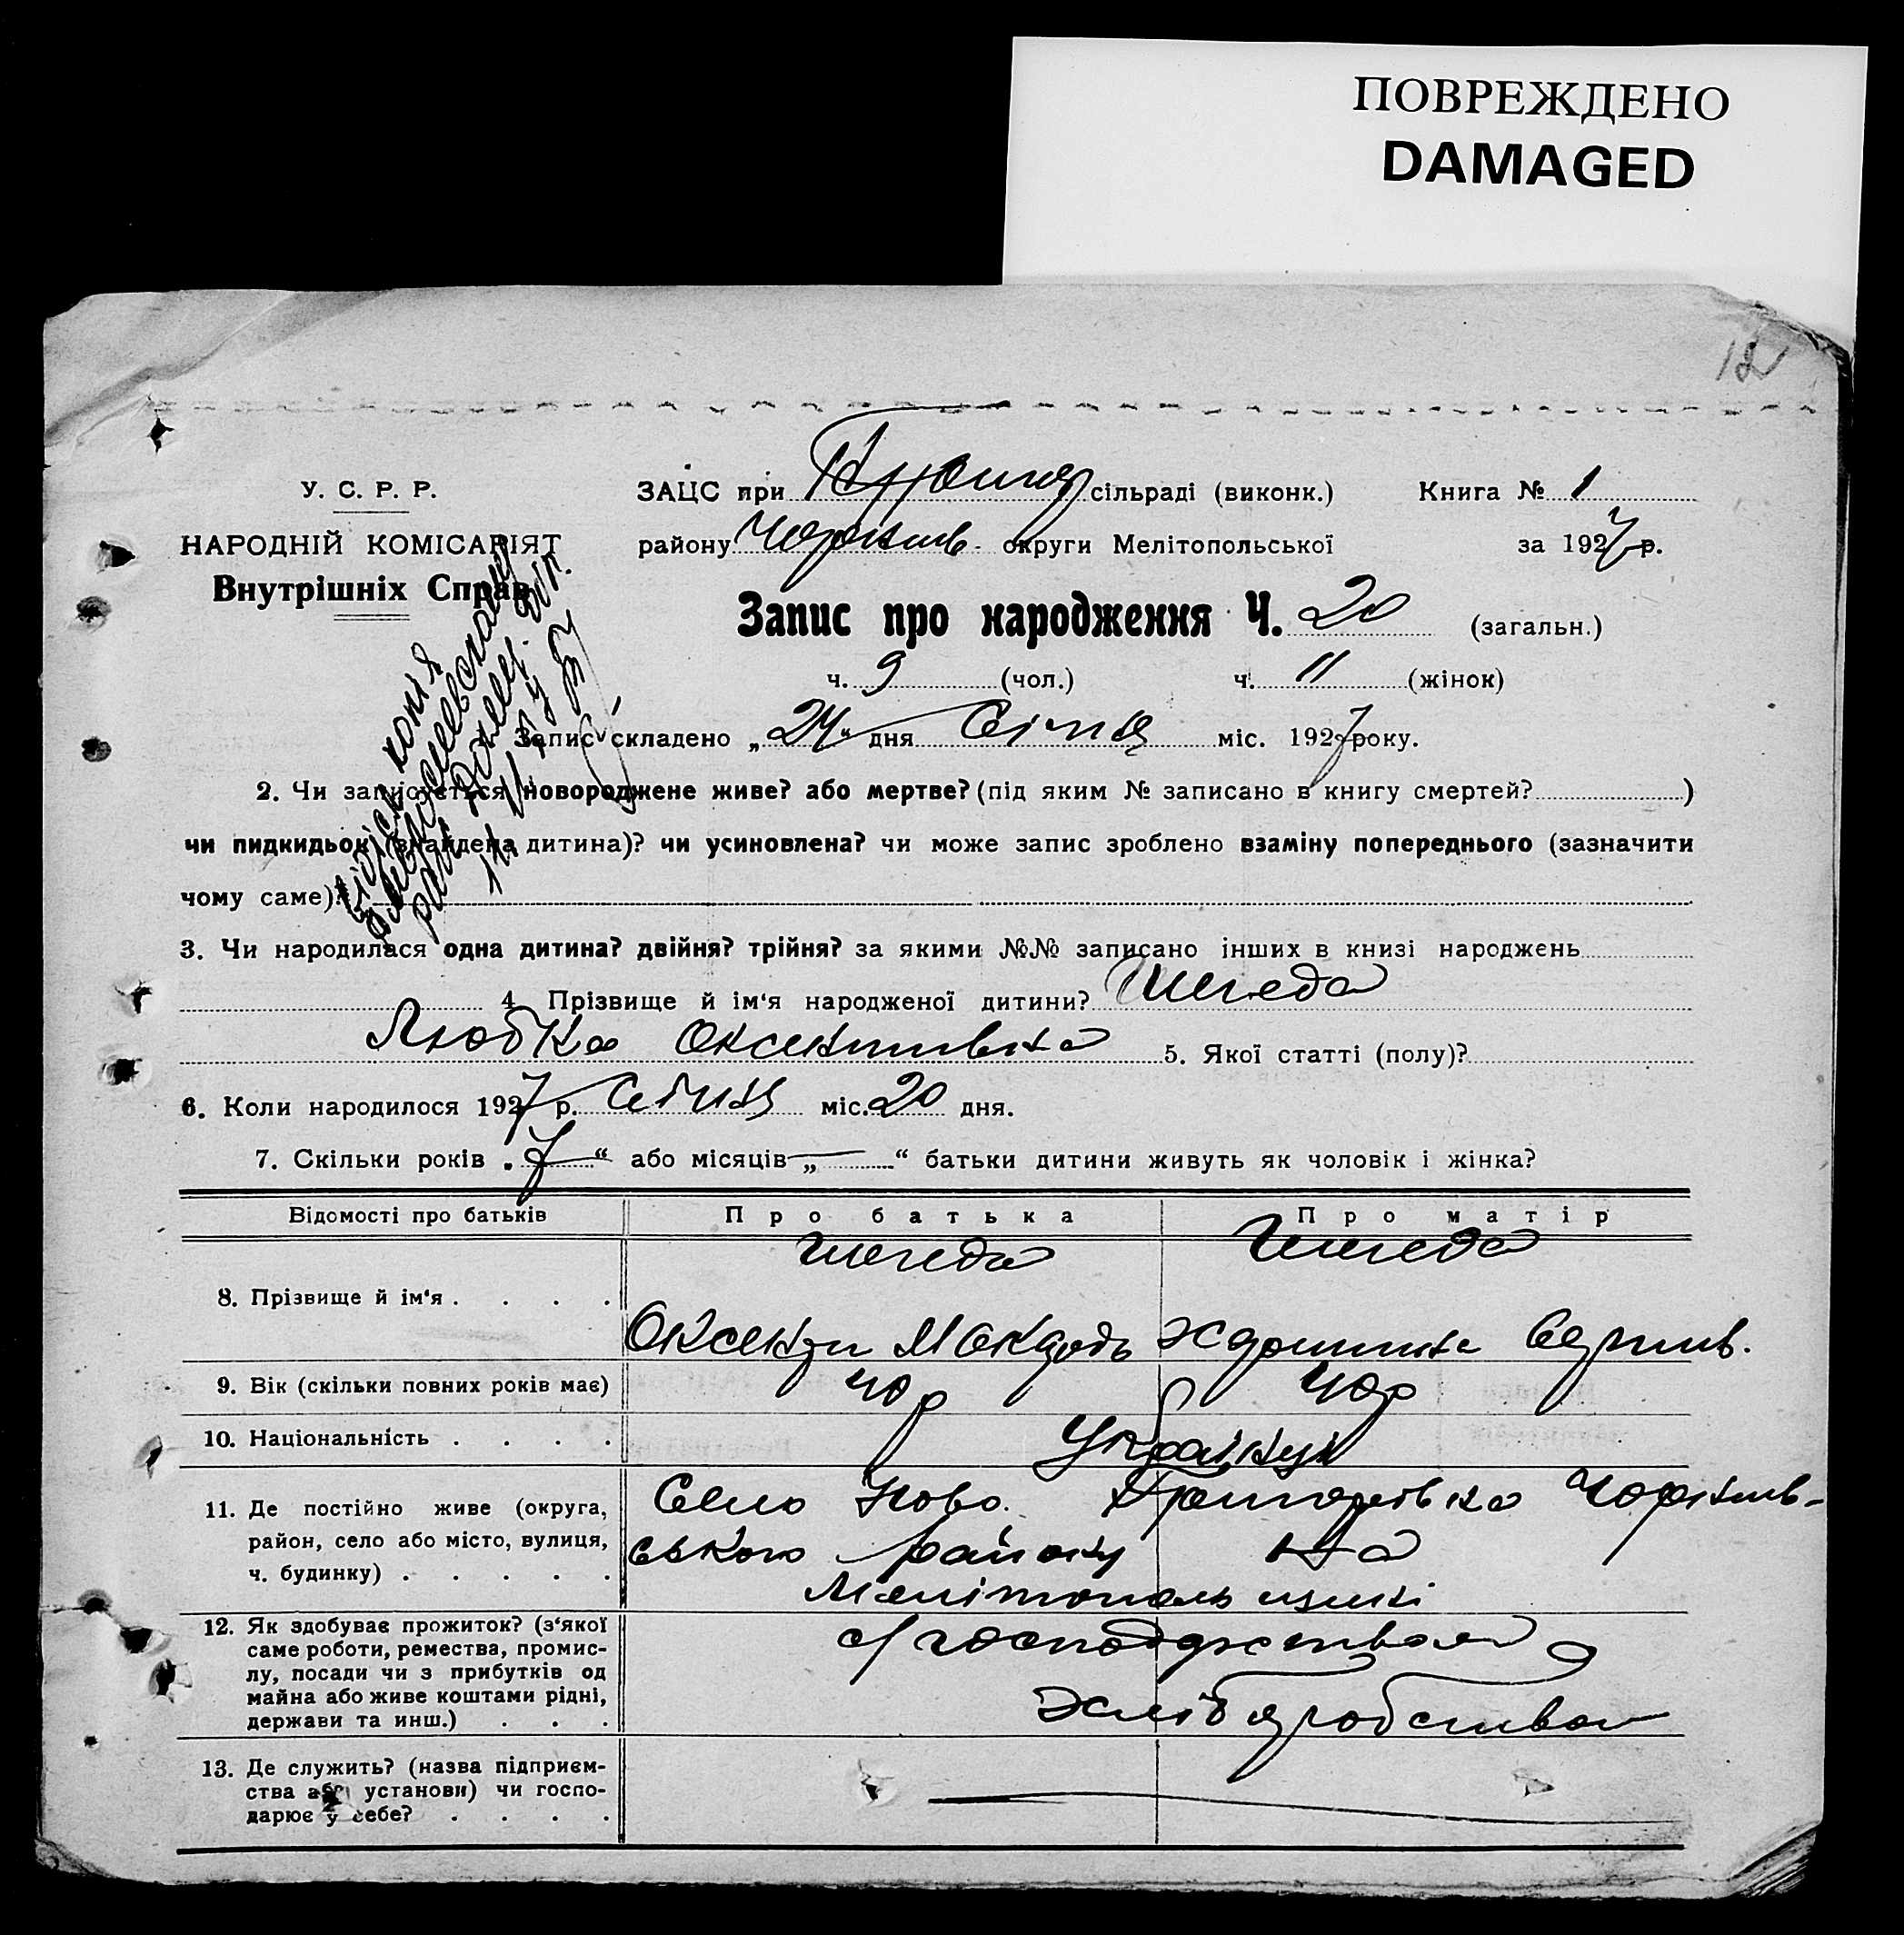 ПОВРЕЖДЕНО
DAMAGED
12
У. С. Р. Р.
НАРОДНІЙ КОМІСАРІЯТ
Внутрішніх Справ
ЗАЦС при сільраді (виконк.) Книга № 1
району Чернігів- округи Мелітопольської за 1927 р.
Запис про народження Ч. 20 (загальн.)
ч. 9 (чол.) ч. 11 (жінок)
Запис складено „24“ дня Січня міс. 1927 року.
2. Чи записується новороджене живе? або мертве? (під яким № записано в книгу смертей? )
чи пидкидьок (знайдена дитина)? чи усиновлена? чи може запис зроблено взаміну попереднього (зазначити
чому саме)?
3. Чи народилася одна дитина? двійня? трійня? за якими №№ записано інших в книзі народжень
4. Прізвище й ім‘я народженої дитини? Шегеда
Любка 5. Якої статті (полу)?
6. Коли народилося 1927 р. Січня міс. 20 дня.
7. Скільки років „7“ або місяців „—“ батьки дитини живуть як чоловік і жінка?
Відомості про батьків Про батька Про матір
Шегеда Шегеда
8. Прізвище й ім‘я . . . .
9. Вік (скільки повних років має) 40 р 40 р
10. Національність . . . . Українці
11. Де постійно живе (округа, район, село або місто, вулиця, ч. будинку) . . . . .
Село Ново. Григорівка Чернігів-
ського району на
Мелітопольщині
12. Як здобуває прожиток? (з‘якої саме роботи, ремества, промислу, посади чи з прибутків од майна або живе коштами рідні, держави та инш.) . . .
с/господарством
хліборобством
13. Де служить? (назва підприємства або установи) чи господарює у себе? . . . .